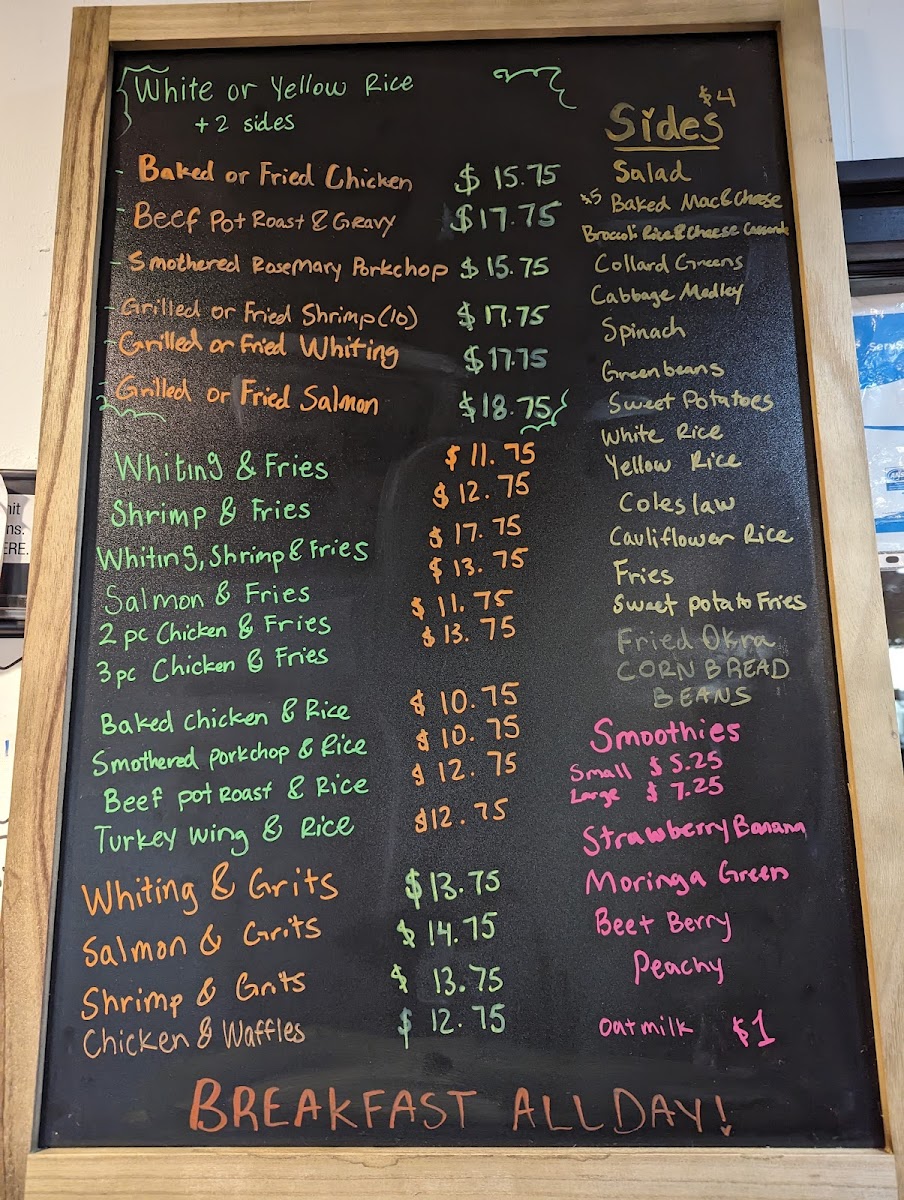 White or Yellow Rice
+ 2 sides
- Baked or Fried Chicken $ 15.75
- Beef Pot Roast & Gravy $17.75
- Smothered Rosemary Porkchop $ 15.75
- Grilled or Fried Shrimp (10) $ 17.75
- Grilled or Fried Whiting $17.75
- Grilled or Fried Salmon $18.75
Whiting & Fries $ 11.75
Shrimp & Fries $ 12.75
Whiting, Shrimp & Fries $ 17.75
Salmon & Fries $ 13.75
2 pc Chicken & Fries $ 11.75
3pc Chicken & Fries $ 13.75
Baked chicken & Rice $ 10.75
Smothered porkchop & Rice $ 10.75
Beef pot Roast & Rice $ 12.75
Turkey Wing & Rice $12.75
Whiting & Grits $13.75
Salmon & Grits $ 14.75
Shrimp & Grits $ 13.75
Chicken & Waffles $ 12.75
$4
Sides
Salad
$5 Baked Mac & Cheese
Broccoli Rice & Cheese Casserole
Collard Greens
Cabbage Medley
Spinach
Greenbeans
Sweet Potatoes
White Rice
Yellow Rice
Coleslaw
Cauliflower Rice
Fries
Sweet potato Fries
Fried Okra
CORN BREAD
BEANS
Smoothies
Small $ 5.25
Large $ 7.25
Strawberry Banana
Moringa Green
Beet Berry
Peachy
oatmilk $1
BREAKFAST ALL DAY!
ERE.